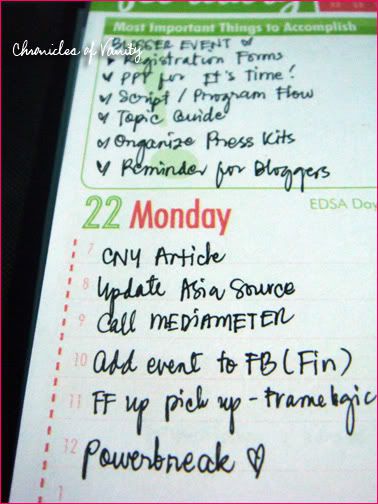 Chronicles of Vanity
Most Important Things to Accomplish
BLOGGER EVENT
Registration Forms
PPT for It's Time!
Script / Program Flow
Topic Guide
Organize Press Kits
Reminder for Bloggers
EDSA Day
22 Monday
7 CNY Article
8 Update Asia Source
9 Call MEDIAMETER
10 Add event to FB (Fin)
11 FF up pick up - Framelogic
12 Powerbreak ♡
1